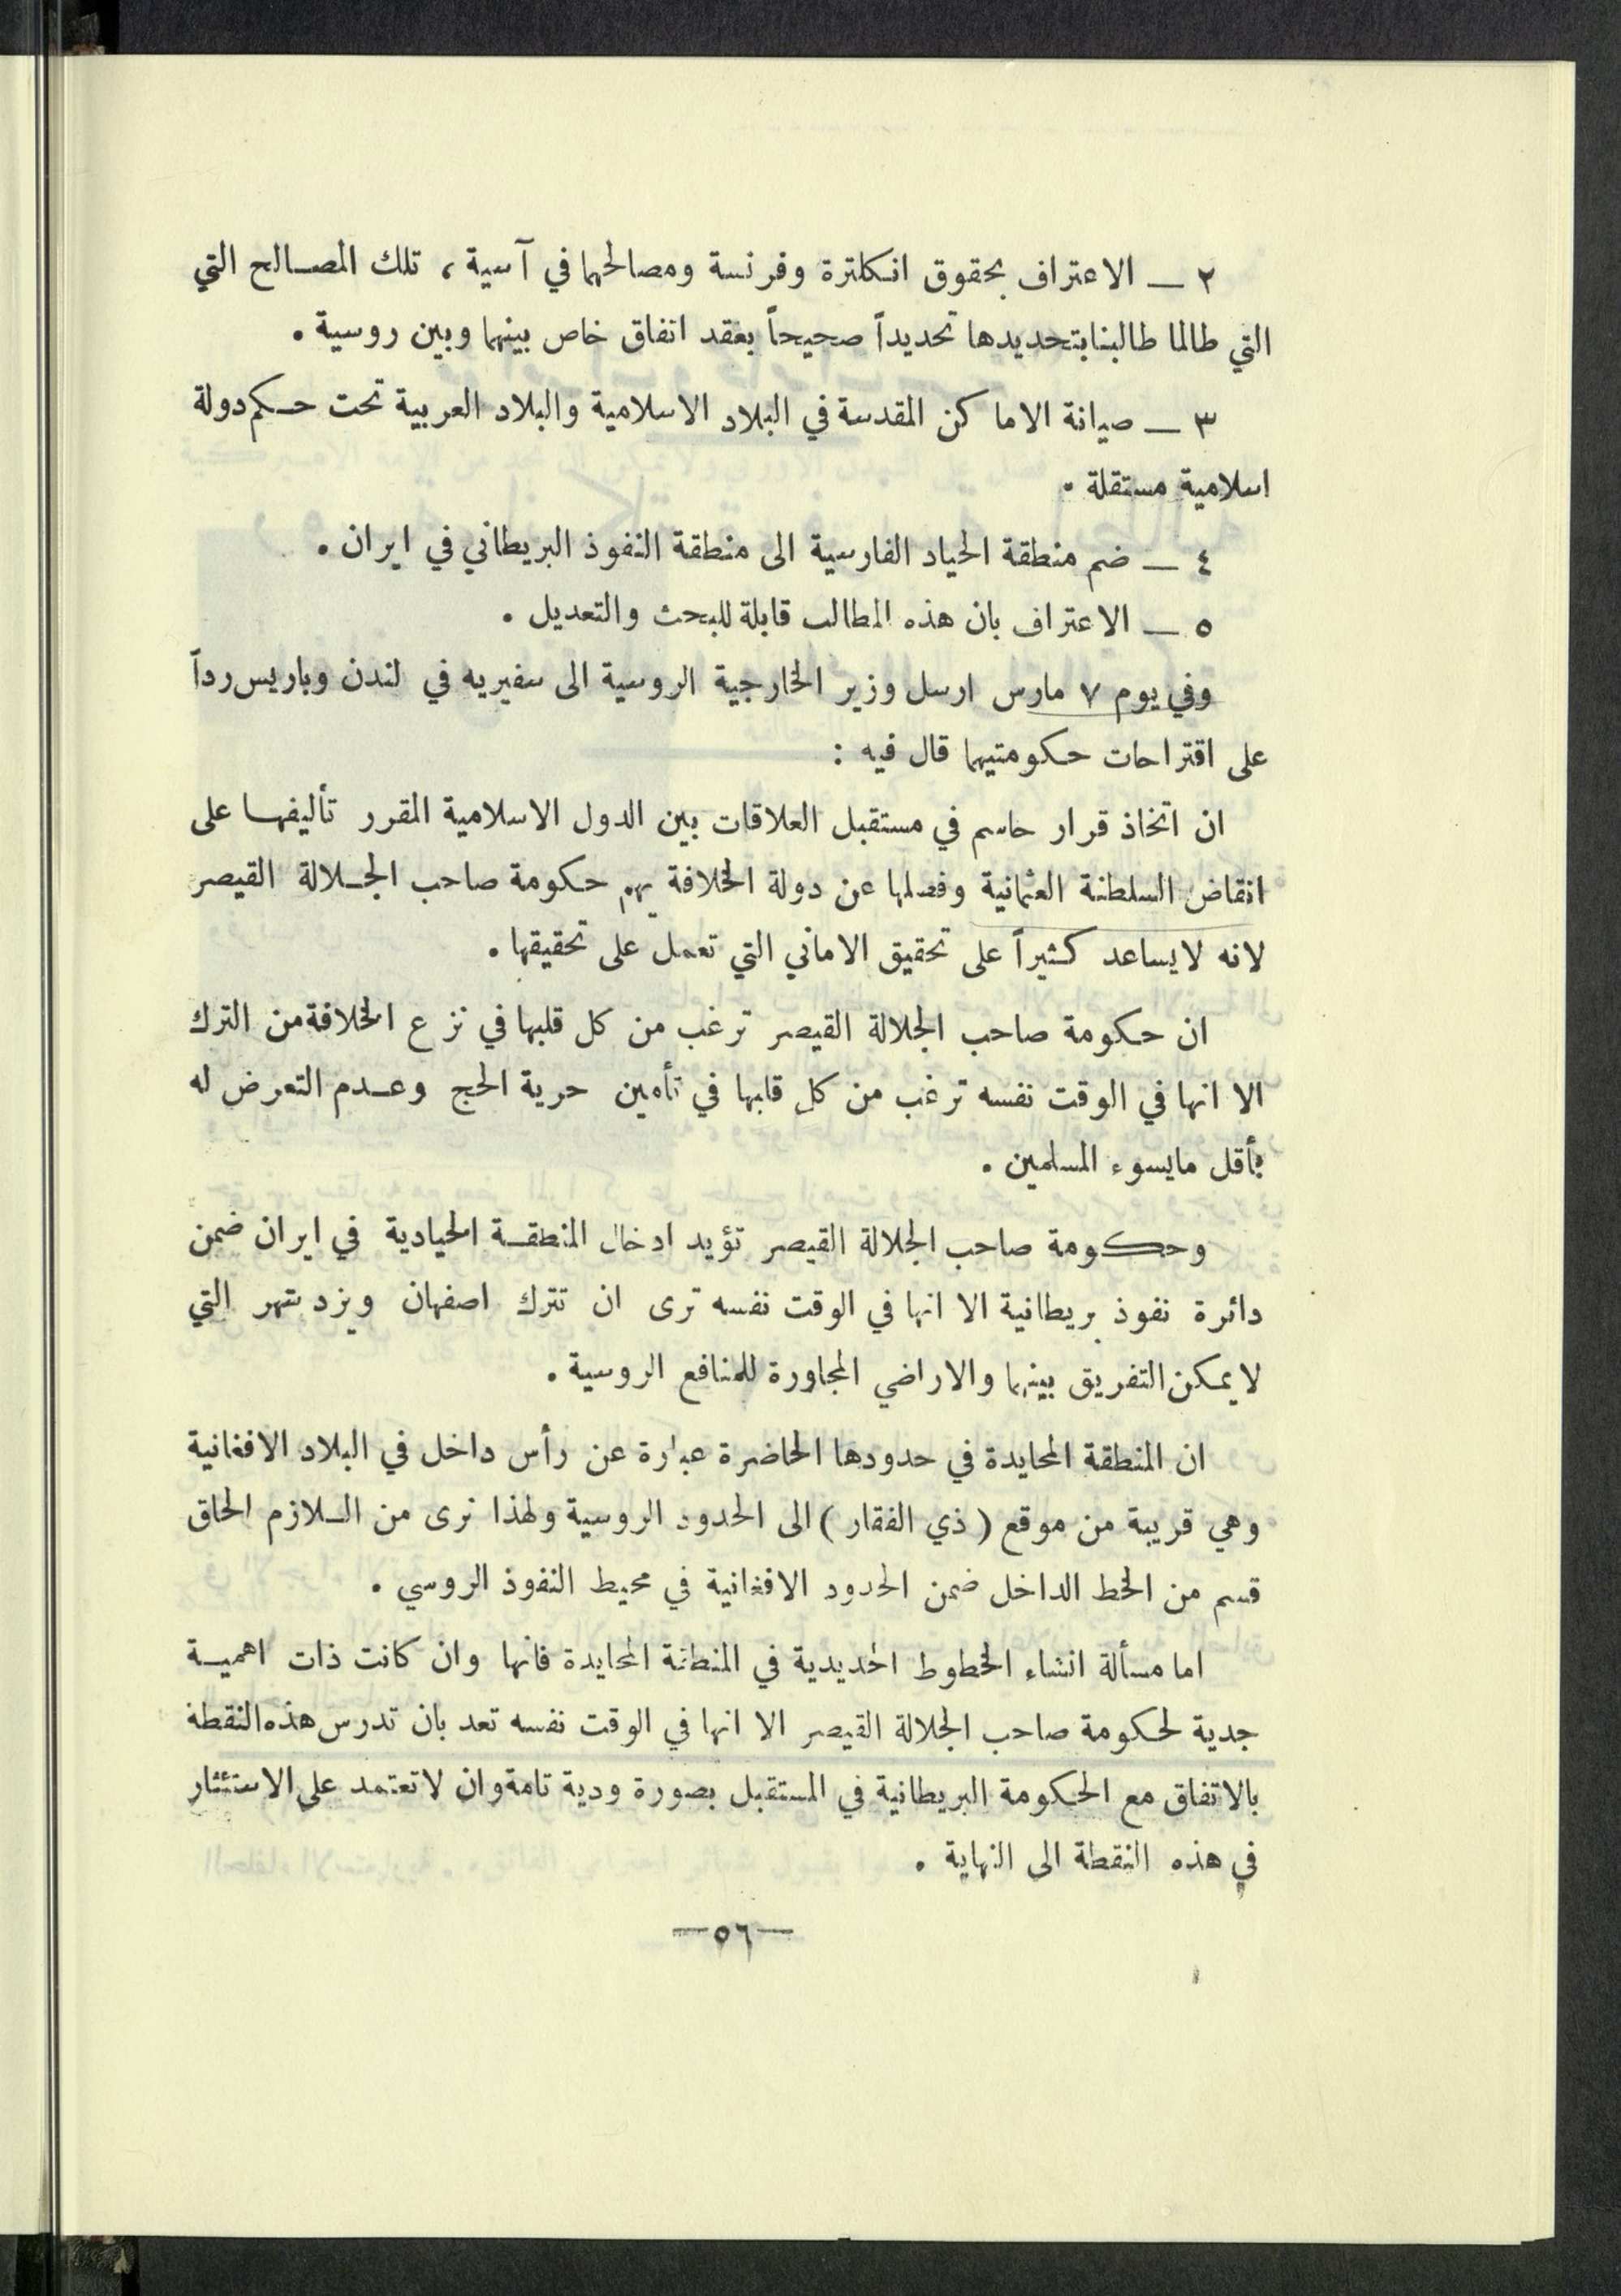 ٢ — الاعتراف بحقوق انكلترة وفرنسة ومصالحهما في آسية ، تلك المصالح التي
التي طالما طالبنا بتحديدها تحديداً صحيحاً بعقد اتفاق خاص بينهما وبين روسية .
٣ — صيانة الاماكن المقدسة في البلاد الاسلامية والبلاد العربية تحت حكم دولة
اسلامية مستقلة .
٤ — ضم منطقة الحياد الفارسية الى منطقة النفوذ البريطاني في ايران .
٥ — الاعتراف بان هذه المطالب قابلة للبحث والتعديل .
وفي يوم ٧ مارس ارسل وزير الخارجية الروسية الى سفيريه في لندن وباريس رداً
على اقتراحات حكومتيهما قال فيه :
ان اتخاذ قرار حاسم في مستقبل العلاقات بين الدول الاسلامية المقرر تأليفها على
انقاض السلطنة العثمانية وفصلها عن دولة الخلافة يهم حكومة صاحب الجلالة القيصر
لانه لا يساعد كثيراً على تحقيق الاماني التي تعمل على تحقيقها .
ان حكومة صاحب الجلالة القيصر ترغب من كل قلبها في نزع الخلافة من الترك
الا انها في الوقت نفسه ترغب من كل قلبها في تأمين حرية الحج وعدم التعرض له
بأقل مايسوء المسلمين .
وحكومة صاحب الجلالة القيصر تؤيد ادخال المنطقة الحيادية في ايران ضمن
دائرة نفوذ بريطانية الا انها في الوقت نفسه ترى ان تترك اصفهان ويزد شهر التي
لا يمكن التفريق بينهما والاراضي المجاورة للمنافع الروسية .
ان المنطقة المحايدة في حدودها الحاضرة عبارة عن رأس داخل في البلاد الافغانية
وهي قريبة من موقع ( ذي الفقار ) الى الحدود الروسية ولهذا نرى من اللازم الحاق
قسم من الخط الداخل ضمن الحدود الافغانية في محيط النفوذ الروسي .
اما مسألة انشاء الخطوط الحديدية في المنطقة المحايدة فانها وان كانت ذات اهمية
جدية لحكومة صاحب الجلالة القيصر الا انها في الوقت نفسه تعد بان تدرس هذه النقطة
بالاتفاق مع الحكومة البريطانية في المستقبل بصورة ودية تامة وان لا تعتمد على الاستئثار
في هذه النقطة الى النهاية .
—٥٦—